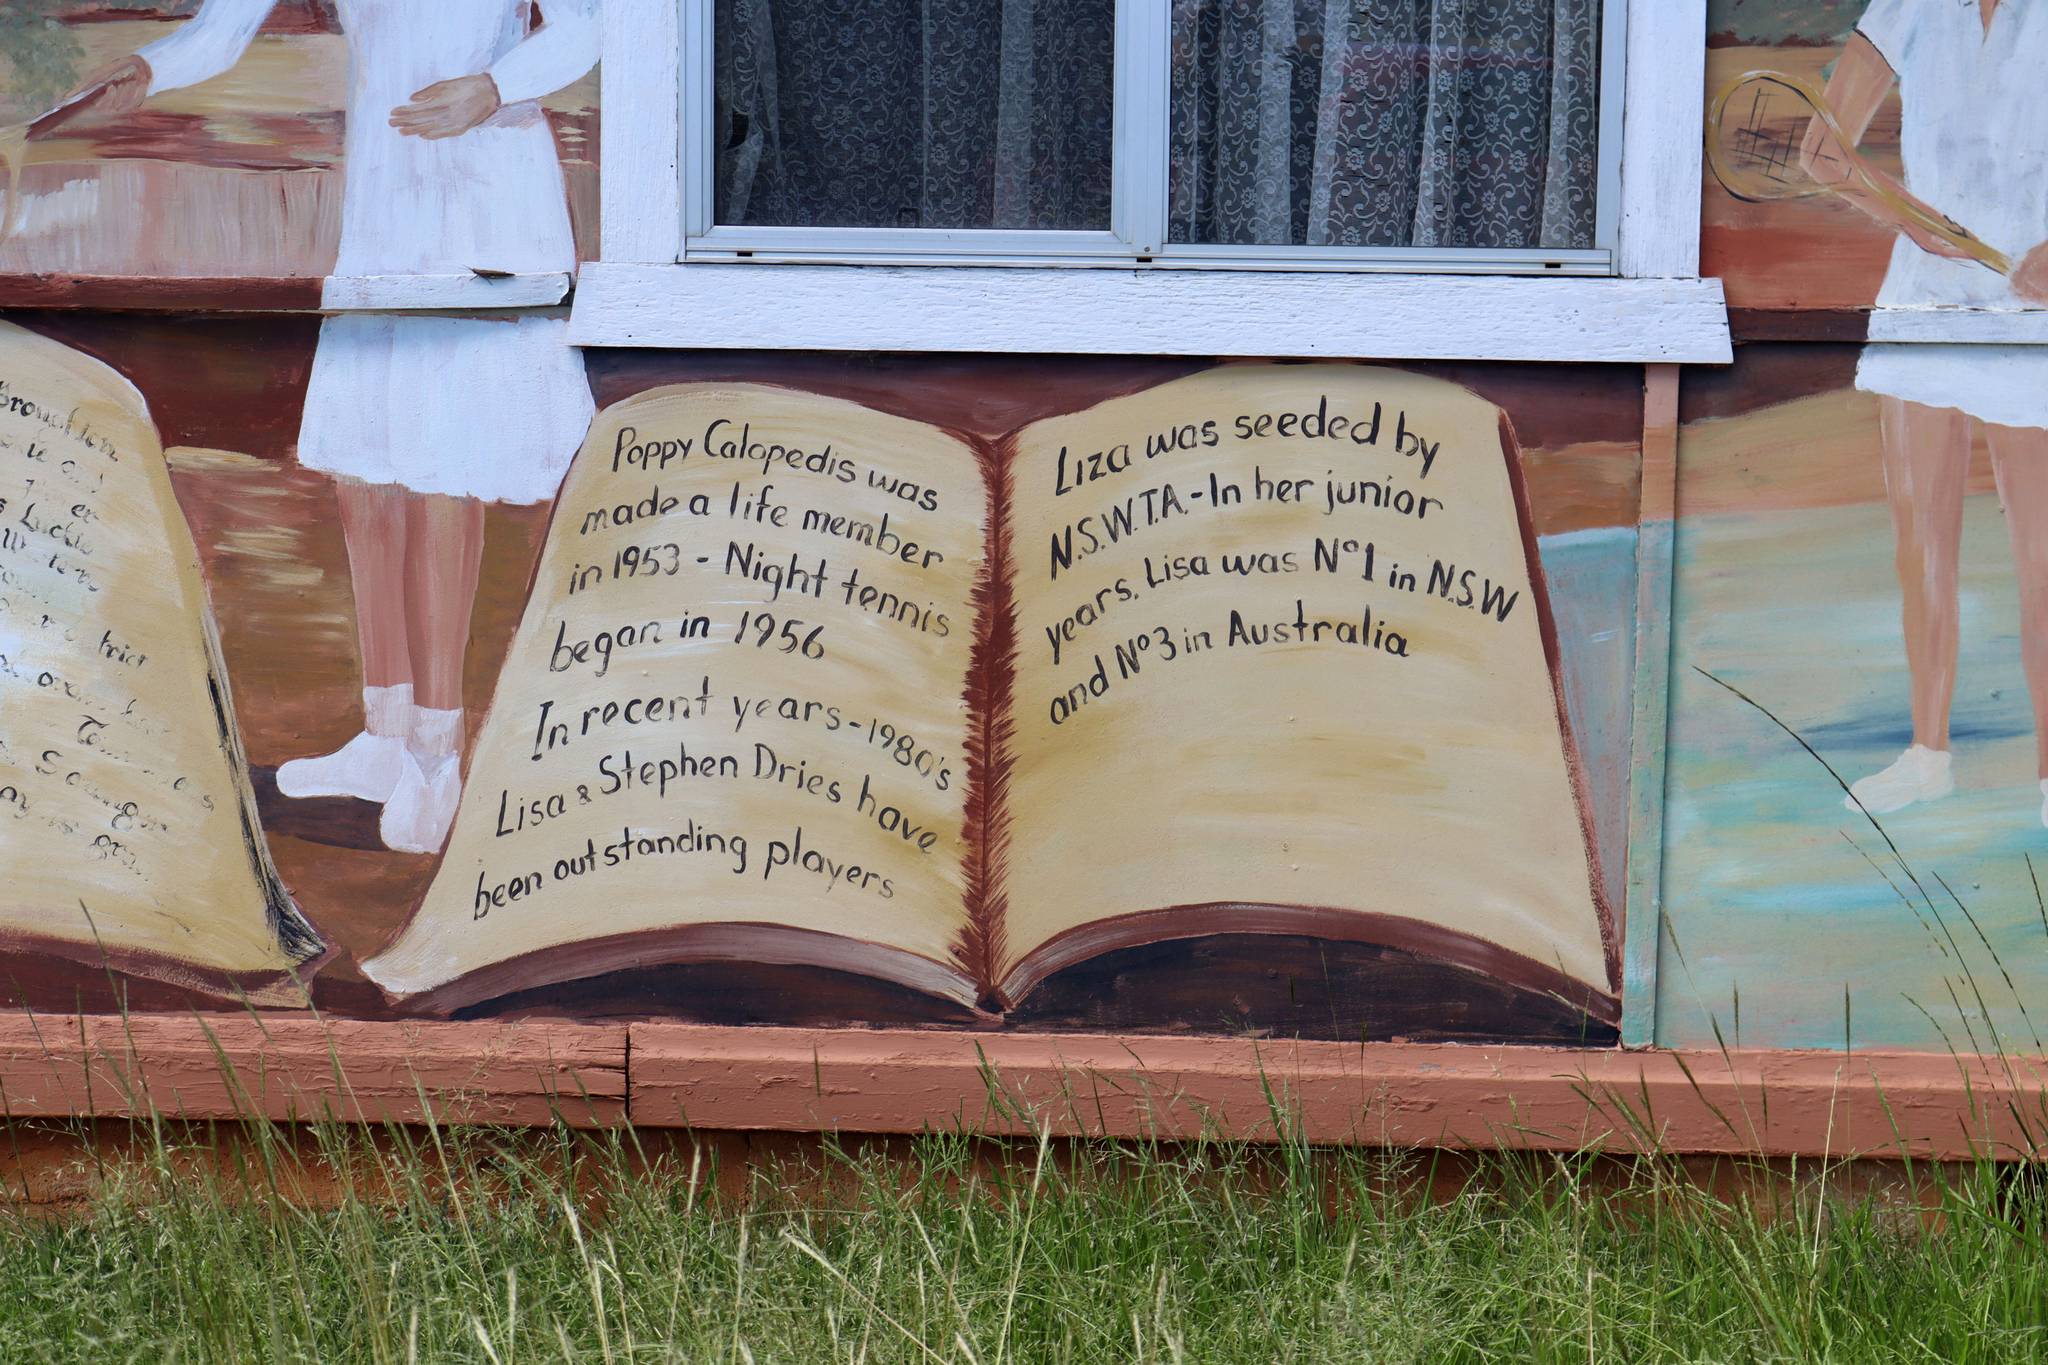 Poppy Calopedis was
made a life member
in 1953 - Night tennis
began in 1956
In recent years - 1980's
Lisa & Stephen Dries have
been outstanding players
Liza was seeded by
N.S.W.T.A. - In her junior
years. Lisa was Nº1 in N.S.W
and Nº3 in Australia